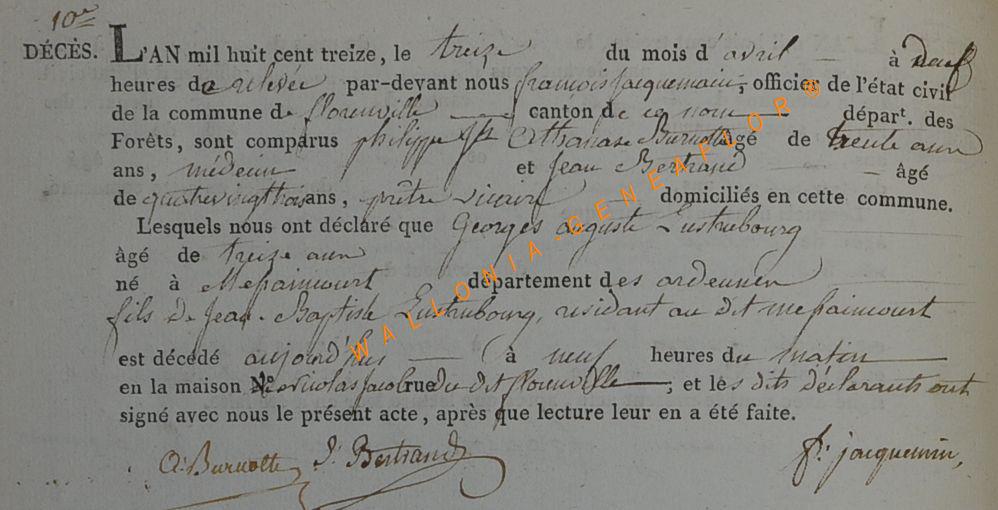 10e
DÉCÈS. L'AN mil huit cent treize, le treize du mois d'avril à neuf
heures de relevée par-devant nous françois jacquemain, officier de l'état civil
de la commune de florenville canton de ce nom départ. des
Forêts, sont comparus philippe Athanase Burnotte âgé de trente aun
ans, médecin et Jean Bertrand âgé
de quatrevingttrois ans, prêtre vicaire domiciliés en cette commune.
Lesquels nous ont déclaré que Georges auguste Lustrubourg
âgé de treize aun
né à Messaincourt département des ardennen
fils de Jean-Baptiste Lustrubourg, residant au dit messaincourt
est décédé aujourd'hui à neuf heures du matin
en la maison de nicolas jacob rue du dit florenville, et les dits déclarants ont
signé avec nous le présent acte, après que lecture leur en a été faite.
A: Burnotte J: Bertrand f: jacquemin,
WALLONIA-GENEAFLOR ®